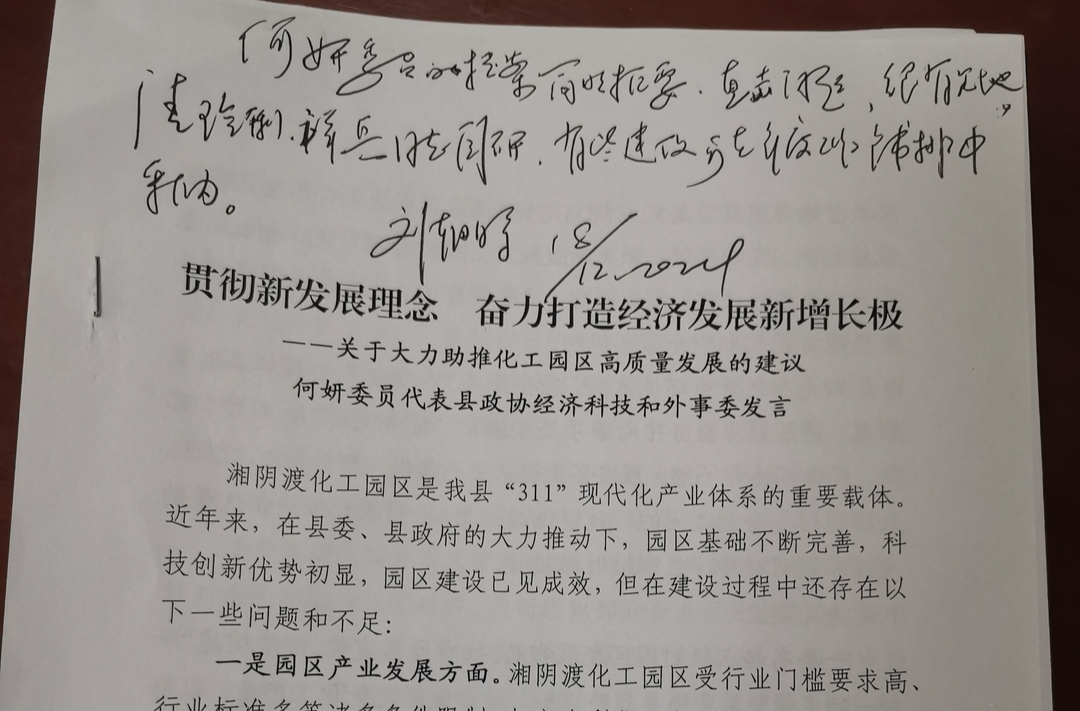 何妍委员的提案简明扼要、直击问题,很有见地,
请玲俐、祥兵同志阅研,有些建议可在年度工作铺排中
采纳。
刘朝晖 18/12.2024
贯彻新发展理念 奋力打造经济发展新增长极
——关于大力助推化工园区高质量发展的建议
何妍委员代表县政协经济科技和外事委发言
湘阴渡化工园区是我县“311”现代化产业体系的重要载体。
近年来,在县委、县政府的大力推动下,园区基础不断完善,科
技创新优势初显,园区建设已见成效,但在建设过程中还存在以
下一些问题和不足:
一是园区产业发展方面。湘阴渡化工园区受行业门槛要求高、
行业标准多等诸多条件限制